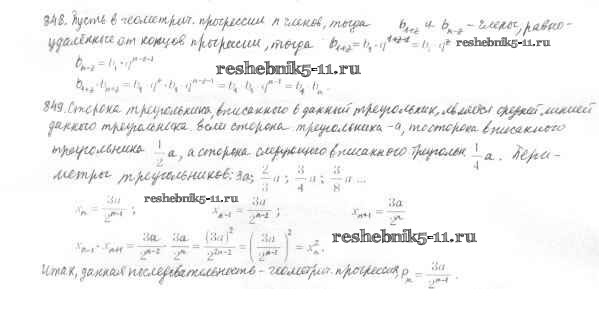 848. Пусть в геометрич. прогрессии n членов, тогда b₁₊z и bₙ₋z - члены, равно-
удалённые от концов прогрессии, тогда b₁₊z = b₁·q¹⁺ᶻ⁻¹ = b₁·qᶻ
bₙ₋z = b₁·qⁿ⁻ᶻ⁻¹
reshebnik5-11.ru
b₁₊z·bₙ₋z = b₁·qᶻ·b₁·qⁿ⁻ᶻ⁻¹ = b₁·b₁·qⁿ⁻¹ = b₁·bₙ.
849. Сторона треугольника, вписанного в данный треугольник, является средней линией
данного треугольника. Если сторона треугольника - a, то сторона вписанного
треугольника 1/2 a, а сторона следующего вписанного треугольн. 1/4 a. Пери-
метры треугольников: 3a; 2/3 a; 3/4 a; 3/8 a ...
xₙ = 3a/2ⁿ⁻¹; reshebnik5-11.ru xₙ₋₁ = 3a/2ⁿ⁻²; xₙ₊₁ = 3a/2ⁿ
xₙ₋₁·xₙ₊₁ = 3a/2ⁿ⁻² · 3a/2ⁿ = (3a)²/2²ⁿ⁻² = (3a/2ⁿ⁻¹)² = xₙ². reshebnik5-11.ru
Итак, данная последовательность - геометрич. прогрессия, Pₙ = 3a/2ⁿ⁻¹.